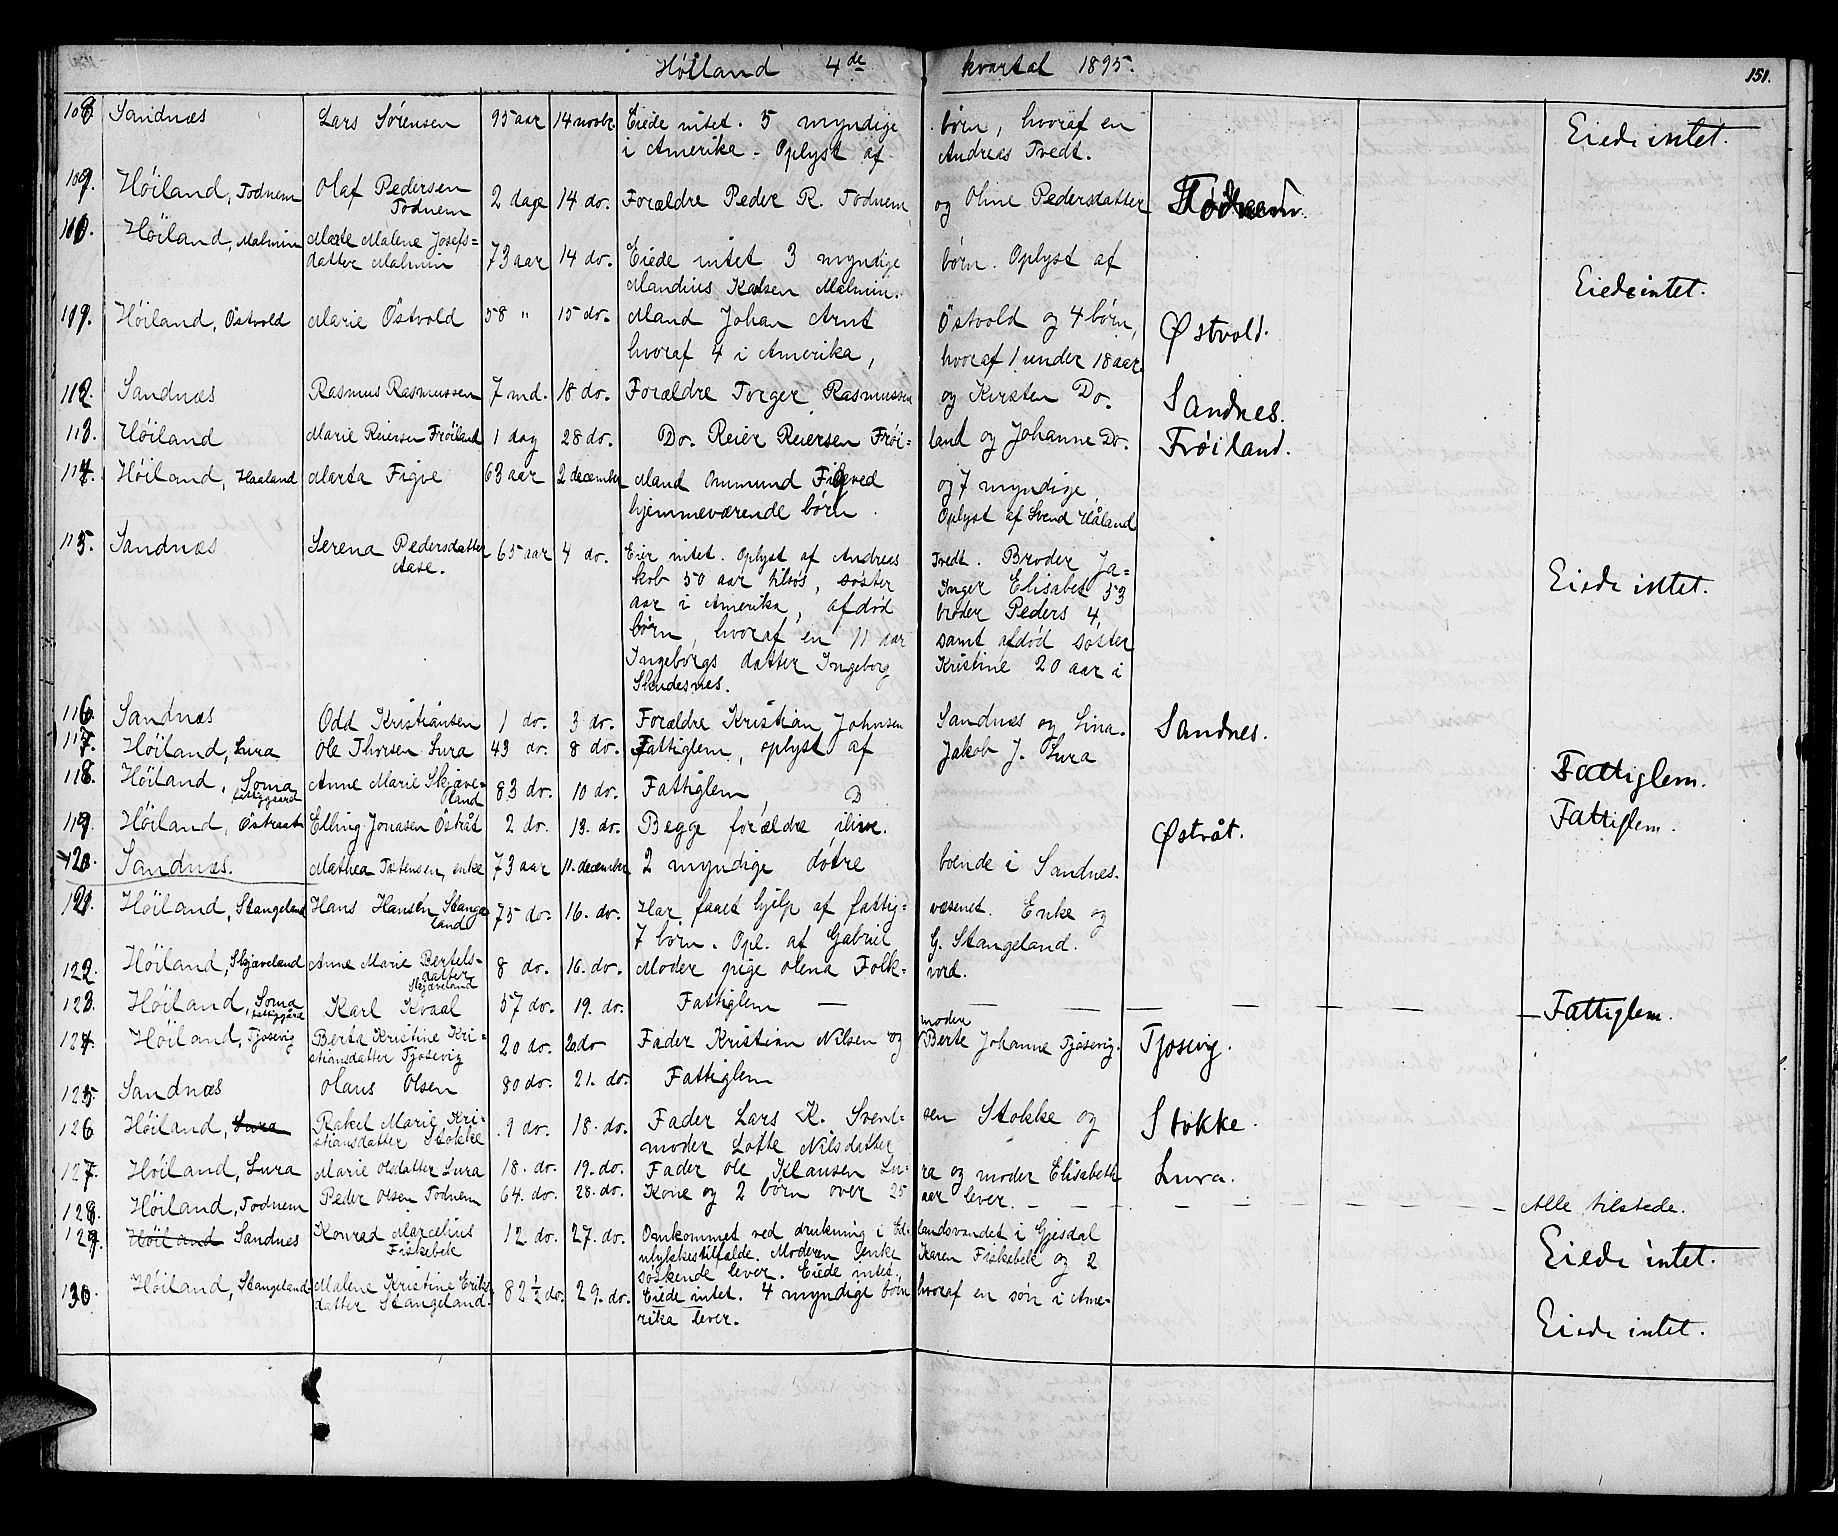 Höiland 4de kvartal 1895. 151.
108. Sandnæs Lars Sørensen 95 aar 14 novbr. Eiede intet. 5 myndige børn, hvoraf en Eiede intet.
i Amerika. Oplyst af Andreas Tvedt.
109. Höiland, Todnem Olaf Pedersen Todnem 2 dage 14 do. Forældre Peder R. Todnem og Oline Pedersdatter Todnem.
110. Höiland, Malmin Marte Malene Josefs-
datter Malmin 73 aar 14 do. Eiede intet 3 myndige børn. Oplyst af
Mandius Malmin. Eiede intet.
119. Höiland, Östvold Marie Östvold 58 " 15 do. Mand Johan Arnt Östvold og 4 børn, Østvold.
hvoraf 4 i Amerika, hvoraf 1 under 18 aar.
112. Sandnæs Rasmus Rasmussen 7 md. 18 do. Forældre Torger Rasmussen og Kirsten Do. Sandnes.
113. Höiland Marie Reiersen Fröiland 1 dag 28 do. Do. Reier Reiersen Fröi- land og Johanne Do. Frøiland.
114. Höiland, Haaland Marta Figve 63 aar 2 december Mand Ommund Figved og 7 myndige
hjemmeværende børn. Oplyst af Svend Håland
115. Sandnæs Serena Pedersdatter
Aase. 65 aar 4 do. Eier intet. Oplyst af Andreas Tvedt. Broder Ja-
kob 50 aar tilsøs, søster Inger Elisabet 53 Eiede intet.
aar i Amerika, afdød broder Peders 4
børn, hvoraf en 11 aar samt afdød söster
Ingeborgs datter Ingeborg Kristine 20 aar i
Skudesnes.
116. Sandnæs Odd Kristiansen 1 do. 3 do. Forældre Kristian Johnsen Sandnæs og Lina. Sandnes.
117. Höiland, Lura Ole Thorsen Lura 43 do. 8 do. Fattiglem, oplyst af Jakob J. Lura
118. Höiland, Soma
fattiggaard Anne Marie Skjæve-
land 83 do. 10 do. Fattiglem Fattiglem.
119. Höiland, Östraat Elling Jonasen Östråt 2 do. 13. do. Begge forældre ilive. Østråt. Fattiglem.
120. Sandnæs. Mathea Tøtensen, enke 73 aar 11. december 2 myndige døtre boende i Sandnes.
121. Höiland, Stangeland Hans Hansen Stange-
land 75 do. 16. do. Har faaet hjelp af fattig- væsenet. Enke og
7 børn. Opl. af Gabriel G. Stangeland.
122. Höiland, Skjæveland Anne Marie Bertels-
datter
Skjæveland 8 do. 16. do. Moder pige Olena Folk- vord.
123. Höiland, Soma
fattiggård Karl Kvaal 57 do. 19. do. Fattiglem — Fattiglem.
124. Höiland, Tjosevig Berta Kristine Kri-
stiansdatter Tjosevig 20 do. 20. do Fader Kristian Nilsen og moder
Berte Johanne Tjosevig. Tjosevig.
125 Sandnæs Olaus Olsen 80 do. 21. do. Fattiglem
126 Höiland, Lura Rakel Marie Kri-
stiansdatter Stokke 9 do. 18. do. Fader Lars K. Svend- sen Stokke og Stokke.
moder Lotte Nilsdatter
127. Höiland, Lura Marie Olsdatter Lura 18. do. 19. do. Fader Ole Klausen Lu- ra og moder Elisabeth Lura.
128. Höiland, Todnem Peder Olsen Todnem 64. do. 28. do. Kone og 2 børn over 25 aar lever. Alle tilstede.
129. Höiland Sandnæs Konrad Marcelius
Fiskebek 12. do. 27. do. Omkommet ved drukning i Ed- landsvandet i Gjesdal
ulykkestilfælde. Moderen enke Karen Fiskebek og 2 Eiede intet.
søskende lever. Eiede intet.
130. Höiland, Stangeland Malene Kristine Eriks-
datter Stangeland. 82 ½ do. 29. do. Eiede intet. 4 myndige børn hvoraf en søn i Ame-
rika lever. Eiede intet.